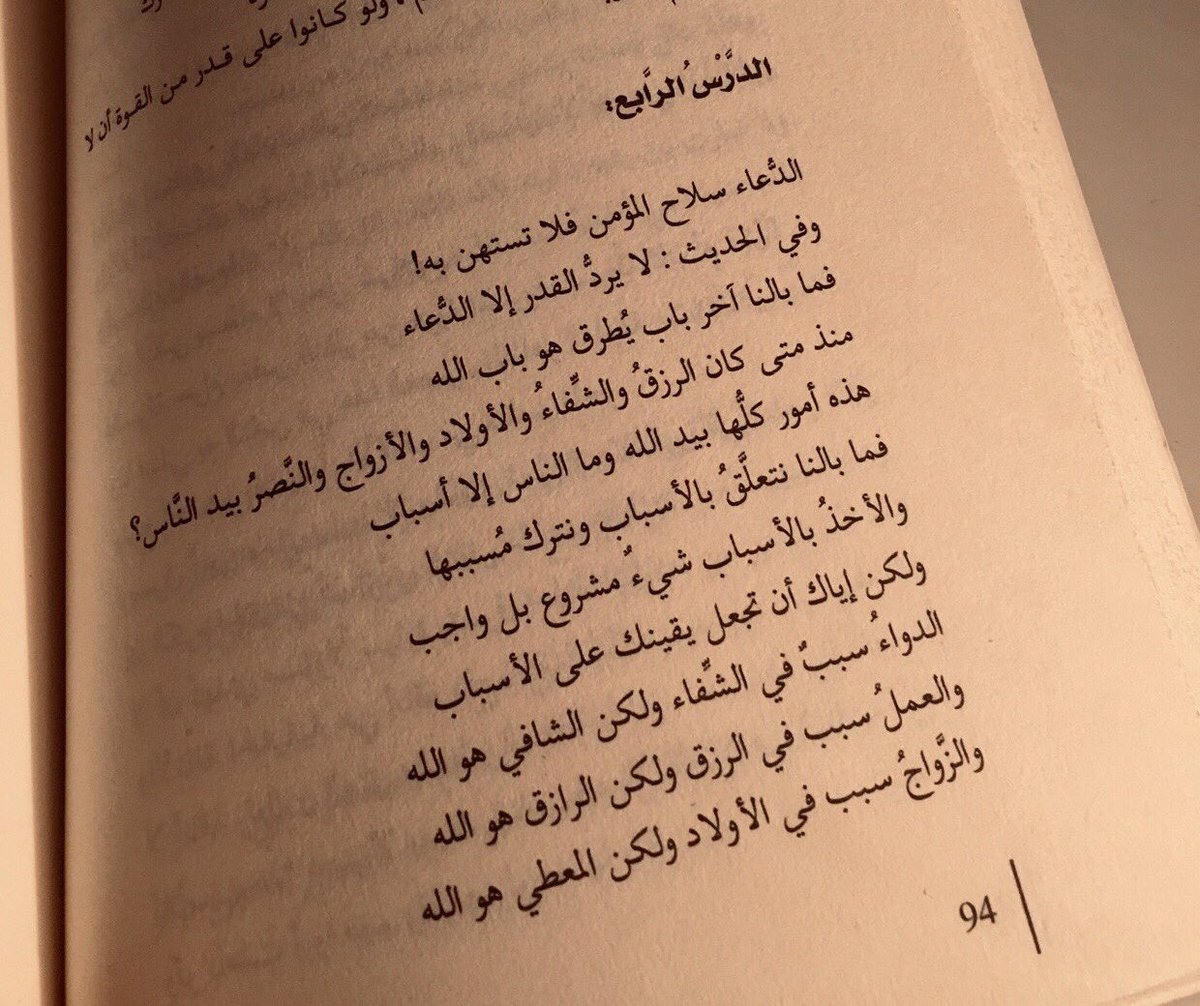 ولو كانوا على قدر من القوة أن لا
الدَّرْسُ الرَّابع:
الدُّعاء سلاح المؤمن فلا تستهن به!
وفي الحديث : لا يردُّ القدر إلا الدُّعاء
فما بالنا آخر باب يُطرق هو باب الله
منذ متى كان الرزقُ والشِّفاءُ والأولاد والأزواج والنَّصرُ بيد النَّاس؟
هذه أمور كلُّها بيد الله وما الناس إلا أسباب
فما بالنا نتعلَّقُ بالأسباب ونترك مُسببها
والأخذُ بالأسباب شيءٌ مشروع بل واجب
ولكن إياك أن تجعل يقينك على الأسباب
الدواءُ سببٌ في الشِّفاء ولكن الشافي هو الله
والعملُ سبب في الرزق ولكن الرازق هو الله
والزَّواجُ سبب في الأولاد ولكن المعطي هو الله
94